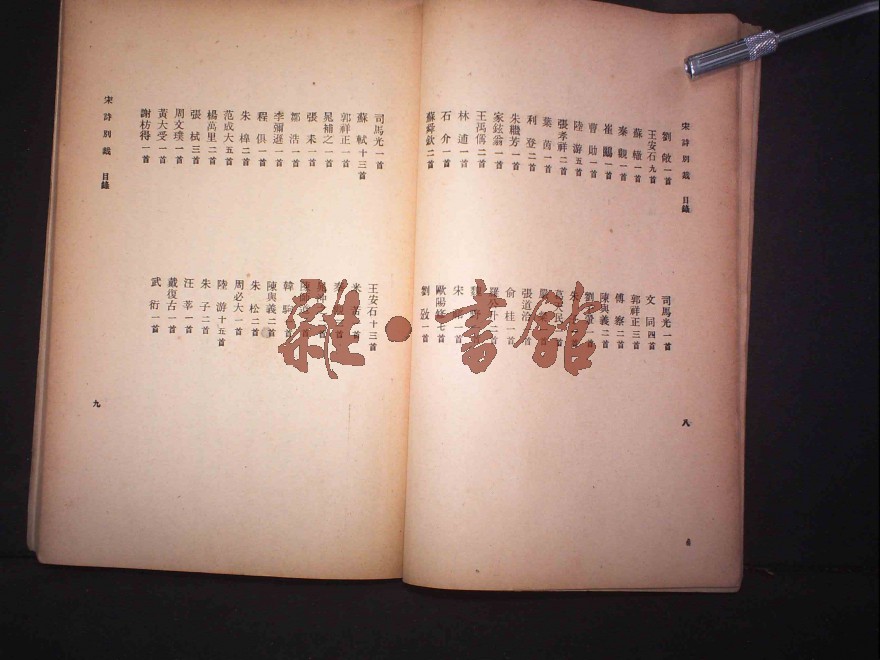 宋詩別裁 目錄
劉敞一首
王安石九首
蘇轍一首
秦觀一首
崔鶠一首
曹勛一首
陸游五首
張孝祥二首
葉茵一首
利登二首
朱繼芳一首
家鉉翁一首
王禹偁二首
林逋一首
石介一首
蘇舜欽二首
司馬光一首
文同四首
郭祥正三首
傅察二首
陳與義二首
張道洽一首
俞桂一首
宋
歐陽修七首
劉攽一首
八
司馬光一首
蘇軾十三首
郭祥正一首
晁補之一首
張耒一首
鄒浩一首
李彌遜一首
程俱一首
朱槔二首
范成大五首
楊萬里二首
張栻三首
周文璞一首
黃大受一首
謝枋得一首
王安石十三首
韓駒
陳與義二首
朱松二首
周必大一首
陸游十五首
朱子二首
汪莘一首
戴復古一首
武衍一首
宋詩別裁 目錄
九
雜·書館